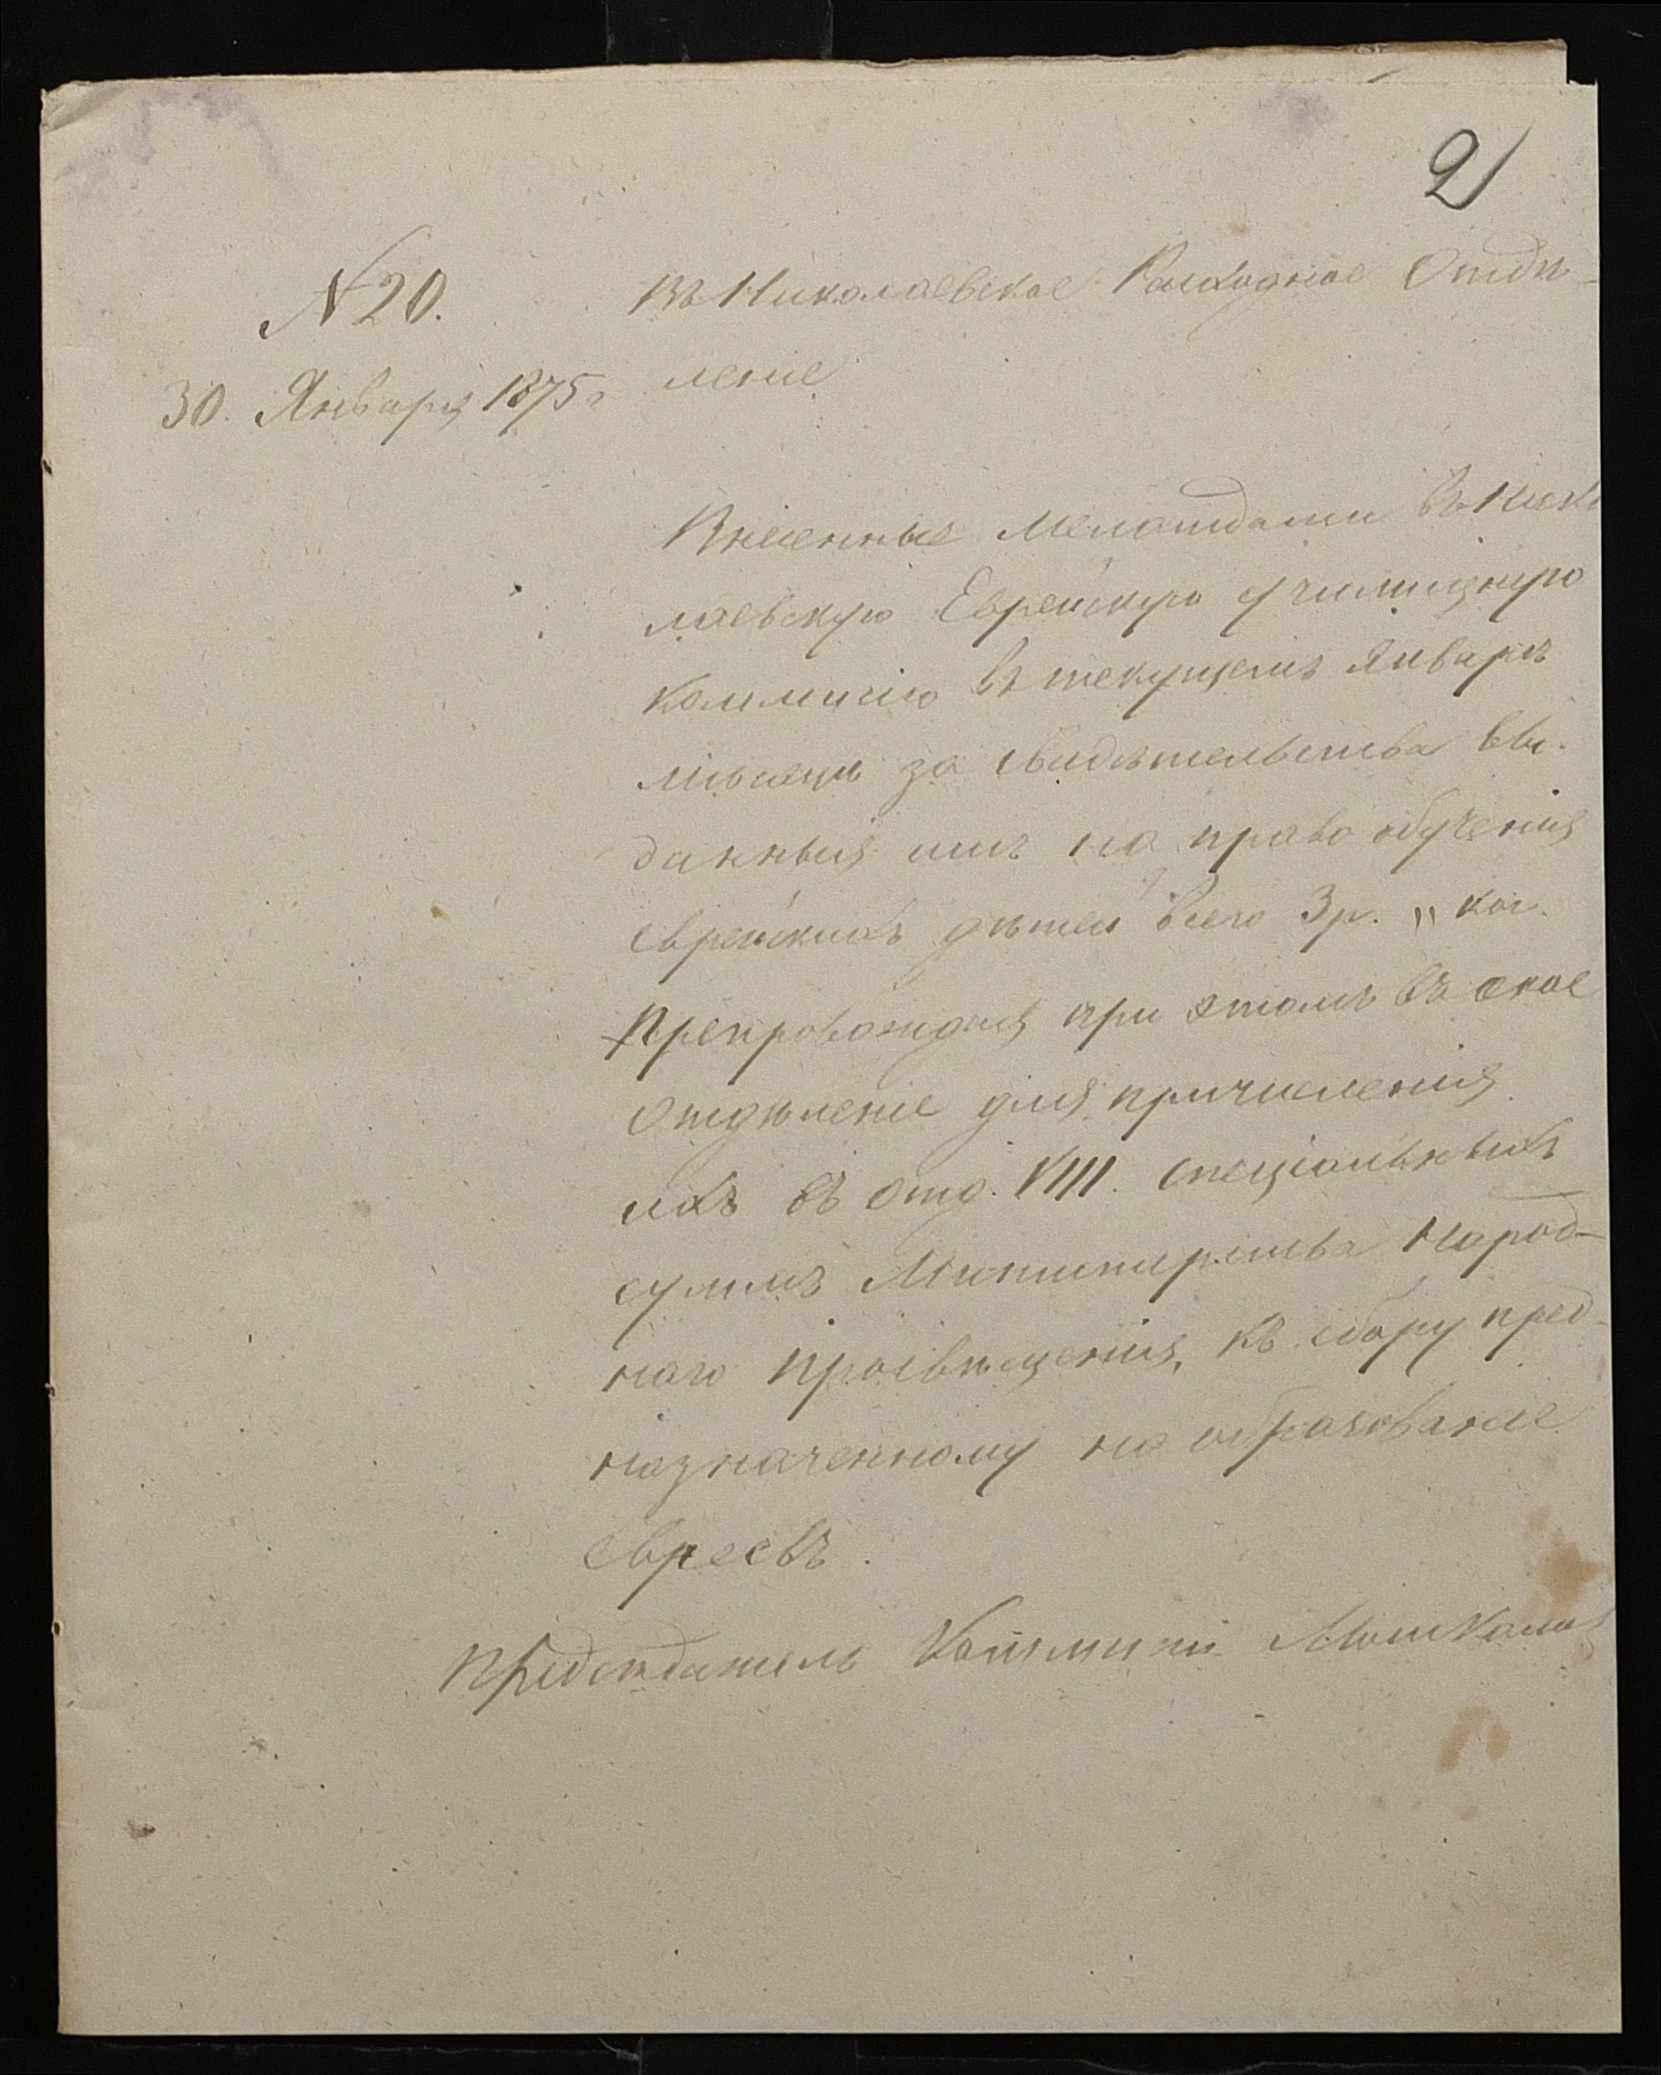 2
№ 20.
30. Января 1875 г
Въ Николаевское Расходное Отдѣ-
леніе
Внесенные Меламдами въ Нико
лаевскую Еврейскую училищную
коммисію въ текущемъ Январѣ
мѣсяцѣ за свидѣтельства вы-
данныя имъ на право обученія
еврейскихъ дѣтей всего 3 р. „ коп.
препровождая при этомъ въ оное
Отдѣленіе для причисленія
ихъ въ отд. VIII. спеціальныхъ
суммъ Министерства Народ-
наго просвѣщенія, къ сбору пред-
назначенному на образование
евреевъ.
Предсѣдатель Коммисіи